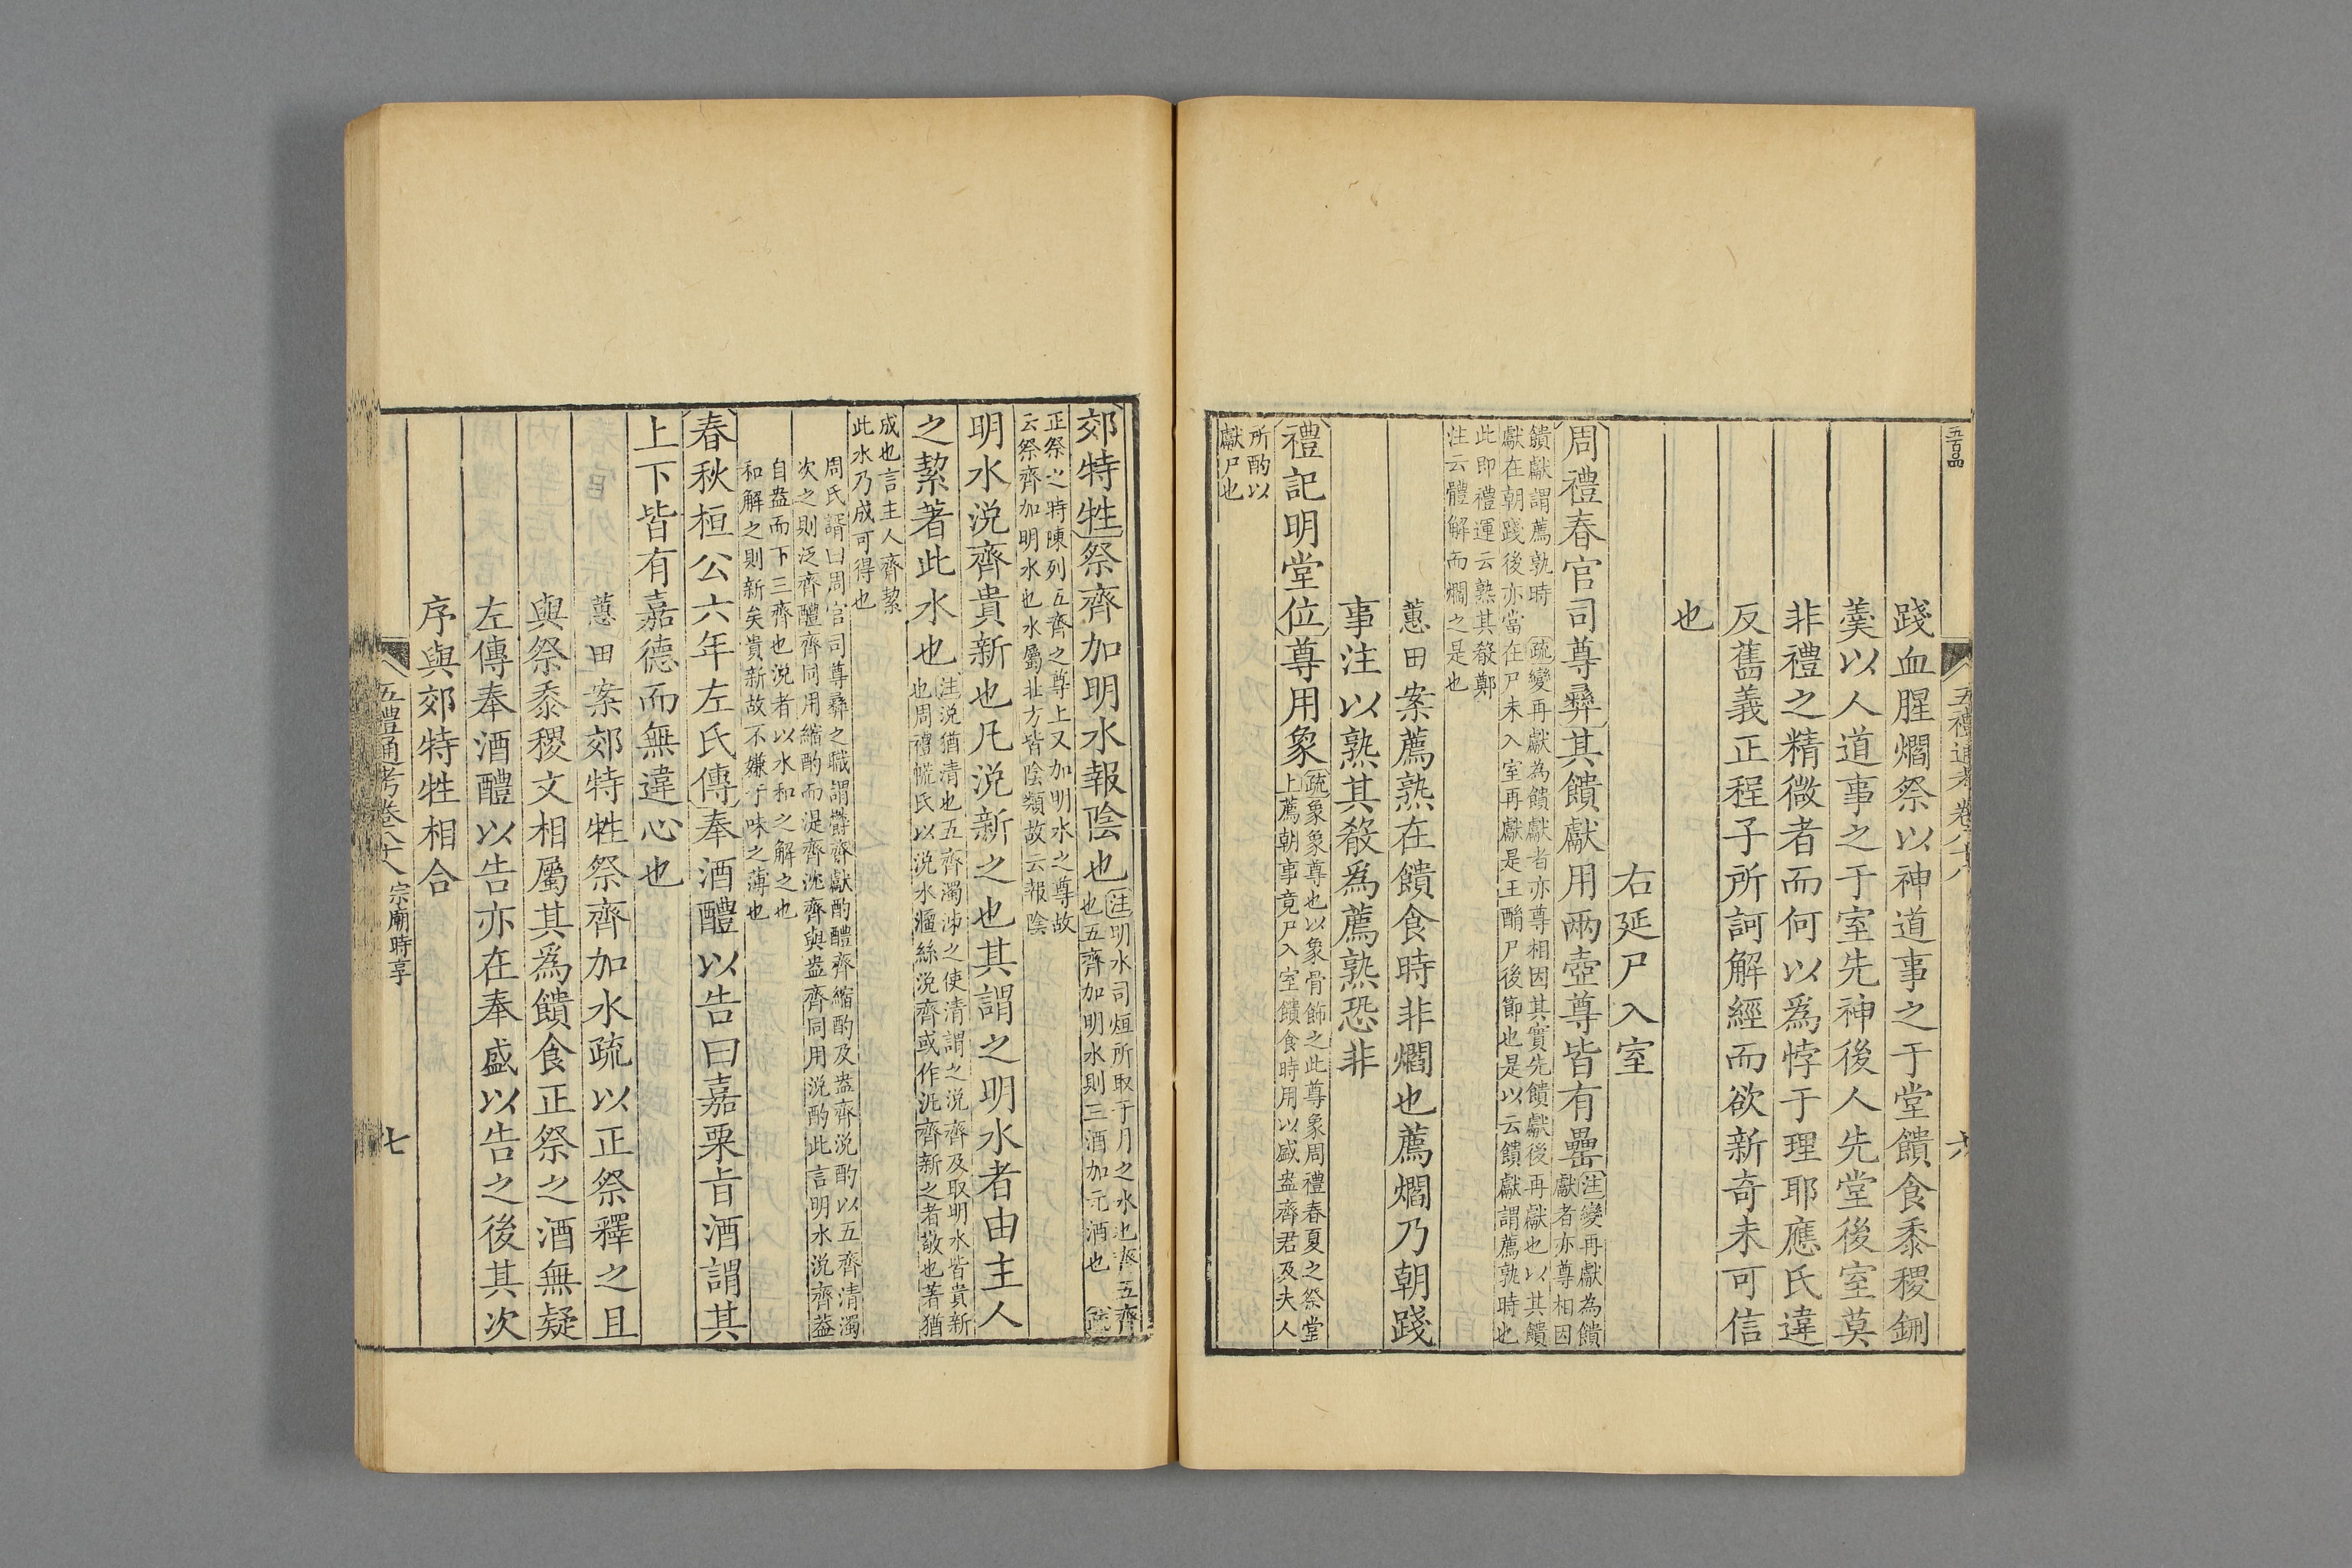 五禮通考卷八十八
六
踐血腥爓祭以神道事之于堂饋食黍稷鉶
羹以人道事之于室先神後人先堂後室莫
非禮之精微者而何以爲悖于理耶應氏違
反舊義正程子所訶解經而欲新奇未可信
也
右延尸入室
周禮春官司尊彝其饋獻用兩壺尊皆有罍注變再獻為饋
獻者亦尊相因
饋獻謂薦孰時 疏變再獻為饋獻者亦尊相因其實先饋獻後再獻也以其饋
獻在朝踐後亦當在尸未入室再獻是王酳尸後節也是以云饋獻謂薦孰時也
此即禮運云熟其殽鄭
注云體解而爓之是也
蕙田案薦熟在饋食時非爓也薦爓乃朝踐
事注以熟其殽爲薦熟恐非
禮記明堂位尊用象疏象象尊也以象骨飾之此尊象周禮春夏之祭堂
上薦朝事竟尸入室饋食時用以盛盎齊君及夫人
所酌以
獻尸也
郊特牲祭齊加明水報陰也注明水司烜所取于月之水也齊五齊
也五齊加明水則三酒加元酒也 疏
正祭之時陳列五齊之尊上又加明水之尊故
云祭齊加明水也水屬北方皆陰類故云報陰
明水涗齊貴新也凡涗新之也其謂之明水者由主人
之絜著此水也注涗猶清也五齊濁泲之使清謂之涗齊及取明水皆貴新
也周禮㡛氏以涗水漚絲涗齊或作汎齊新之者敬也著猶
成也言主人齊絜
此水乃成可得也
周氏諝曰周官司尊彝之職謂鬱齊獻酌醴齊縮酌及盎齊涗酌以五齊清濁
次之則泛齊醴齊同用縮酌而湜齊沈齊與盎齊同用涗酌此言明水涗齊蓋
自盎而下三齊也涗者以水和之解之也
和解之則新矣貴新故不嫌于味之薄也
春秋桓公六年左氏傳奉酒醴以告曰嘉栗旨酒謂其
上下皆有嘉德而無違心也
蕙田案郊特牲祭齊加水疏以正祭釋之且
與祭黍稷文相屬其爲饋食正祭之酒無疑
左傳奉酒醴以告亦在奉盛以告之後其次
序與郊特牲相合
五禮通考卷八十八 宗廟時享
七